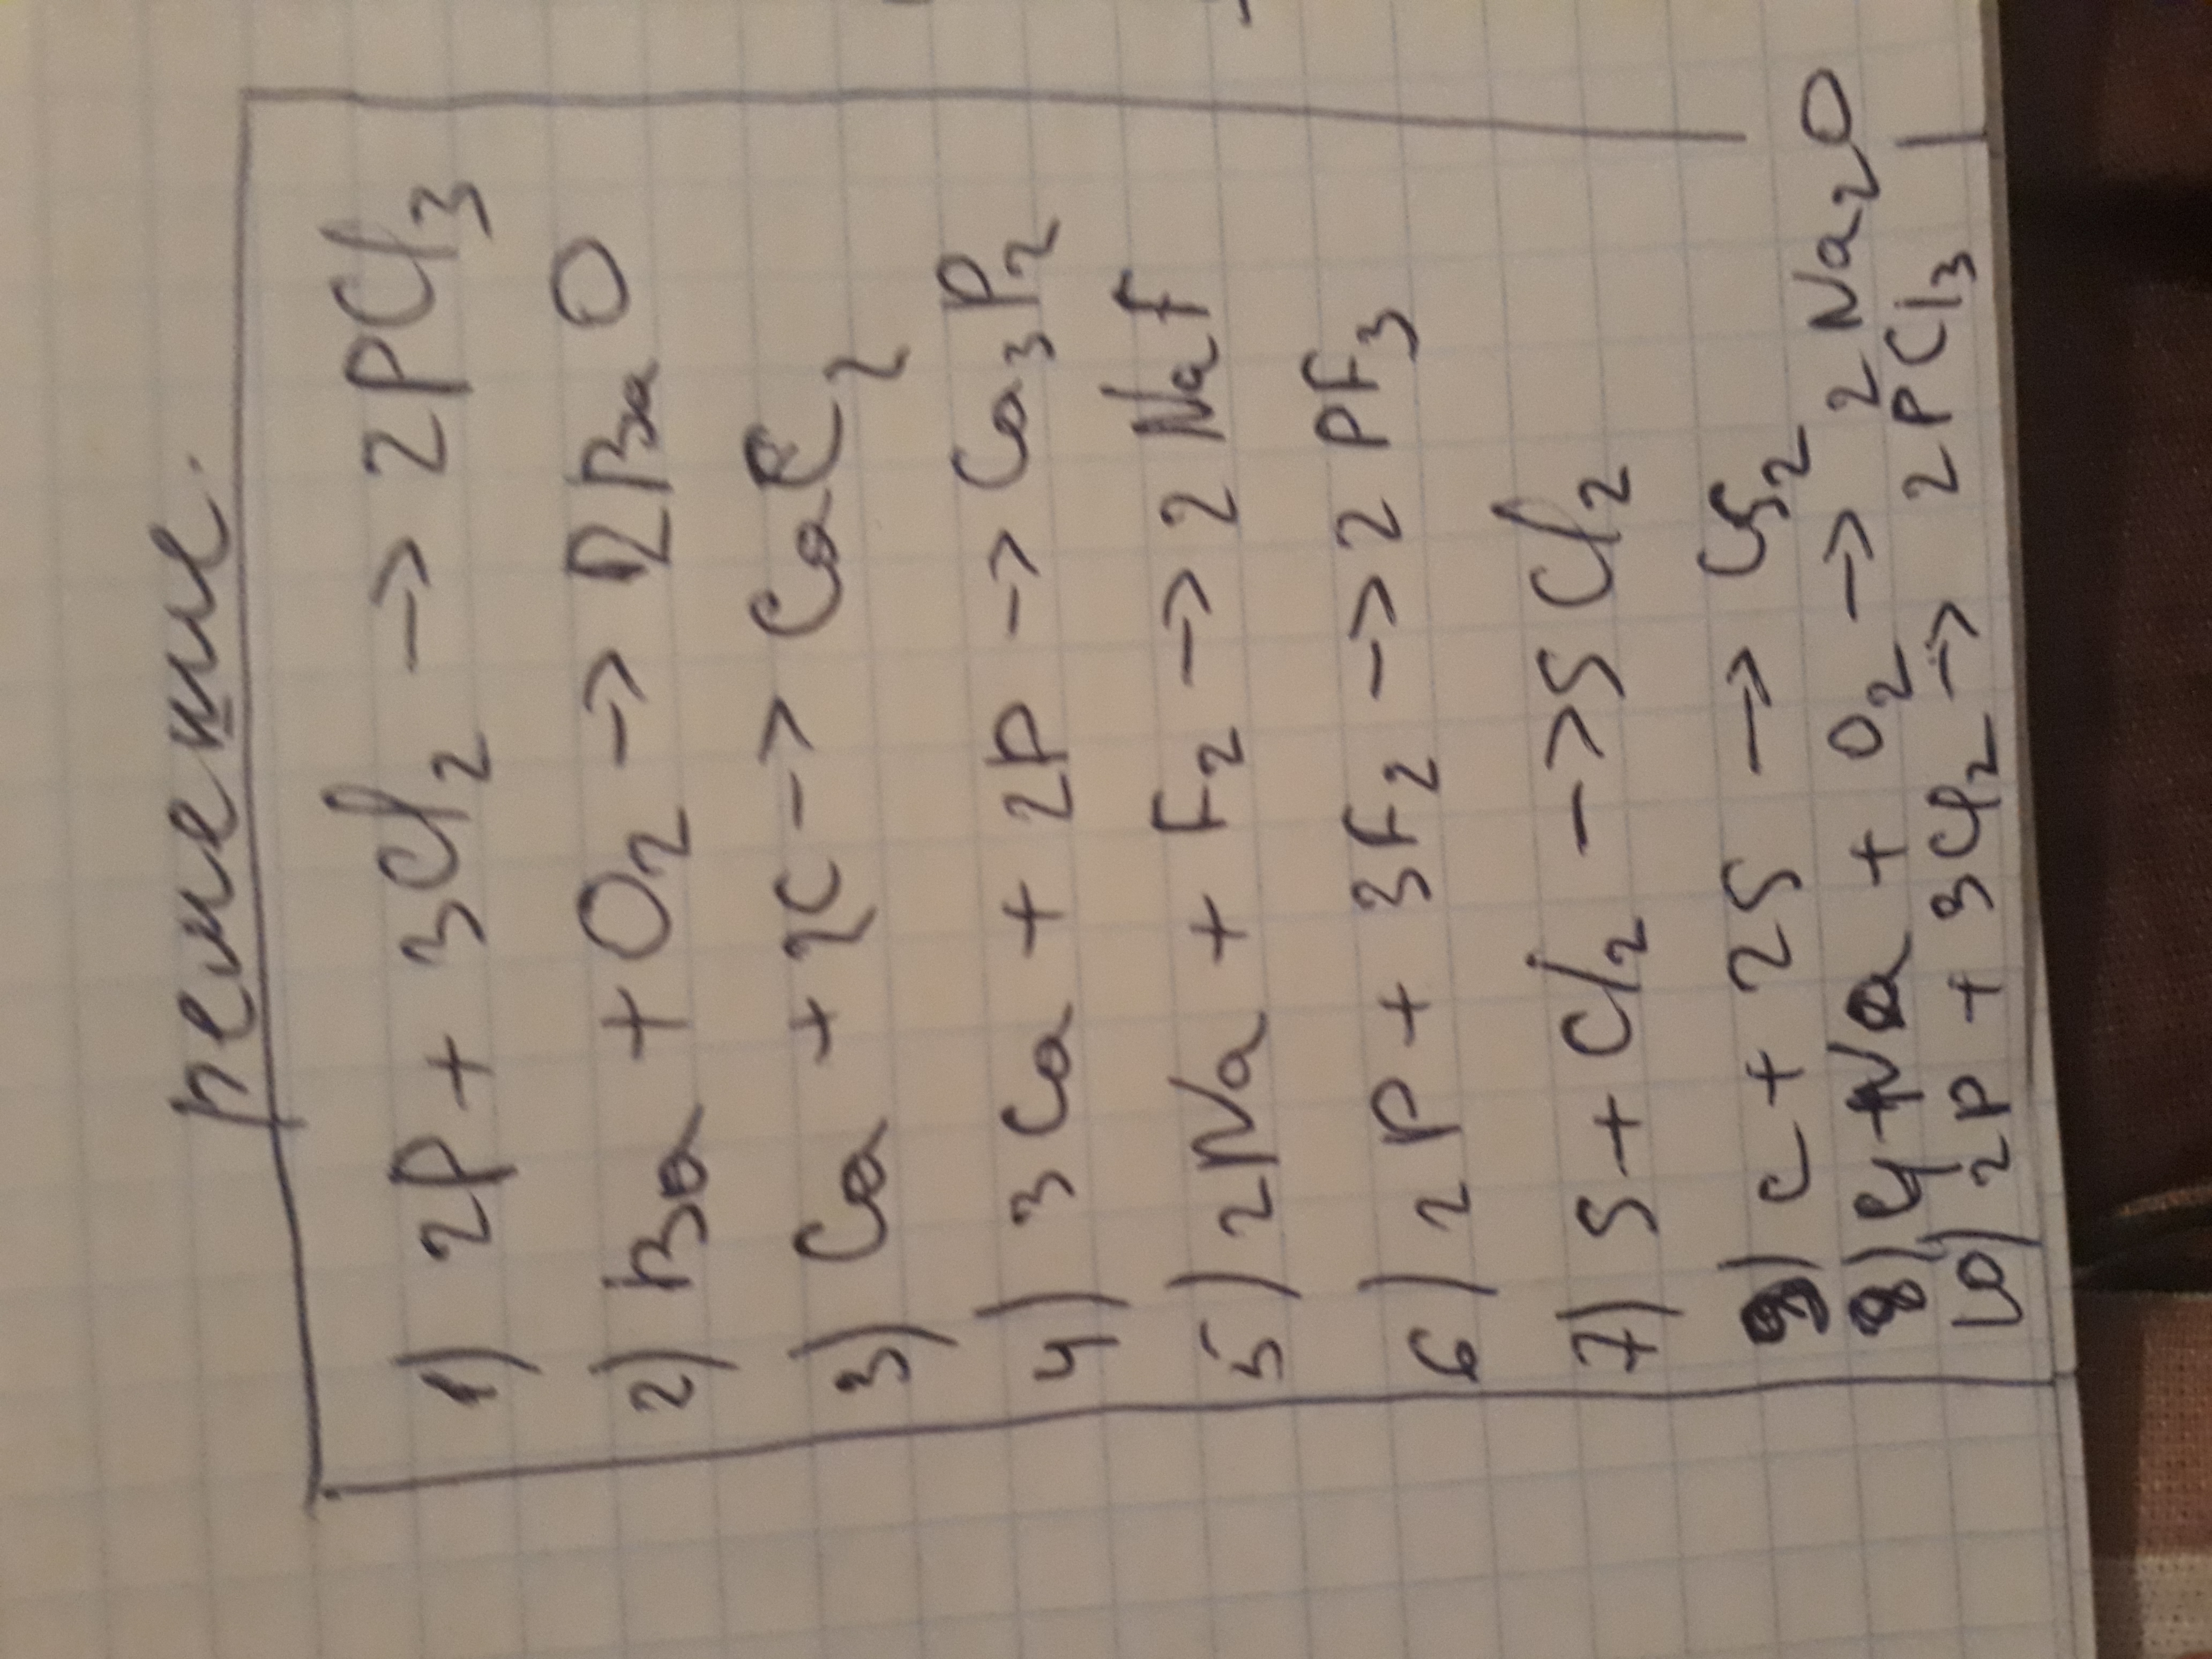 решение.
1) 2P + 3Cl₂ → 2PCl₃
2) Ba + O₂ → 2BaO
3) Ca + 2C → CaC₂
4) 3Ca + 2P → Ca₃P₂
5) 2Na + F₂ → 2NaF
6) 2P + 3F₂ → 2PF₃
7) S + Cl₂ → SCl₂
9) C + 2S → CS₂
8) 4Na + O₂ → 2Na₂O
10) 2P + 3Cl₂ → 2PCl₃